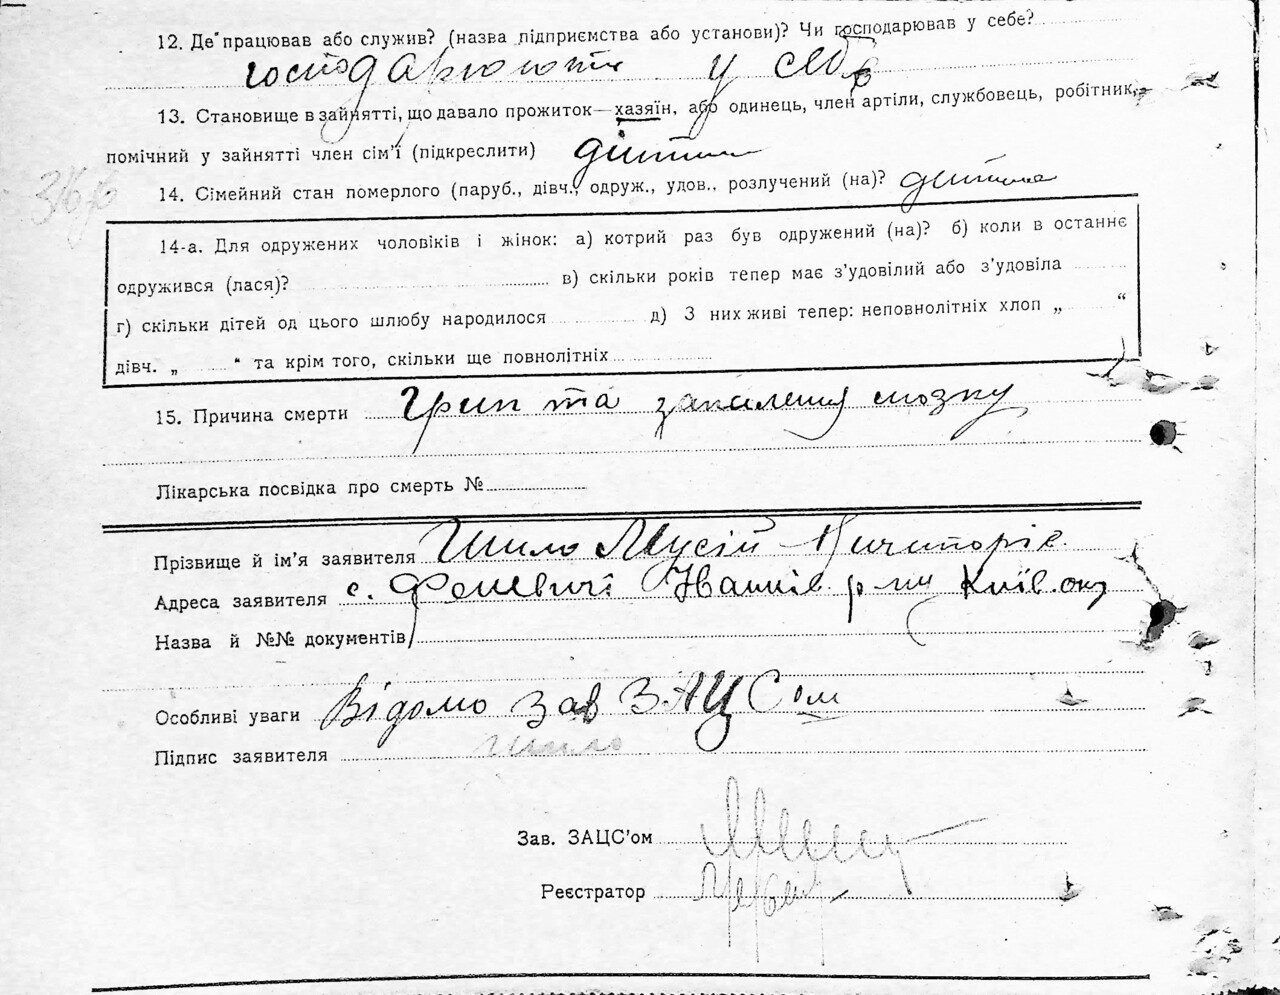 12. Де працював або служив? (назва підприємства або установи)? Чи господарював у себе?
господарювати у себе
13. Становище в зайнятті, що давало прожиток—хазяїн, або одинець, член артіли, службовець, робітник,
помічний у зайнятті член сім'ї (підкреслити) дитина
14. Сімейний стан померлого (паруб., дівч., одруж., удов., розлучений (на)? дитина
14-а. Для одружених чоловіків і жінок: а) котрий раз був одружений (на)? б) коли в останнє
одружився (лася)? в) скільки років тепер має з'удовілий або з'удовіла
г) скільки дітей од цього шлюбу народилося д) З них живі тепер: неповнолітніх хлоп „ “
дівч. „ “ та крім того, скільки ще повнолітніх
15. Причина смерти Грип та запалення мозку
Лікарська посвідка про смерть №
Прізвище й ім'я заявителя Шило Мусій
Адреса заявителя с. Феневичі Іванків р-ну Київ. ок
Назва й №№ документів
Особливі уваги Відомо зав ЗАЦСом
Підпис заявителя Шило
Зав. ЗАЦС'ом
Реєстратор